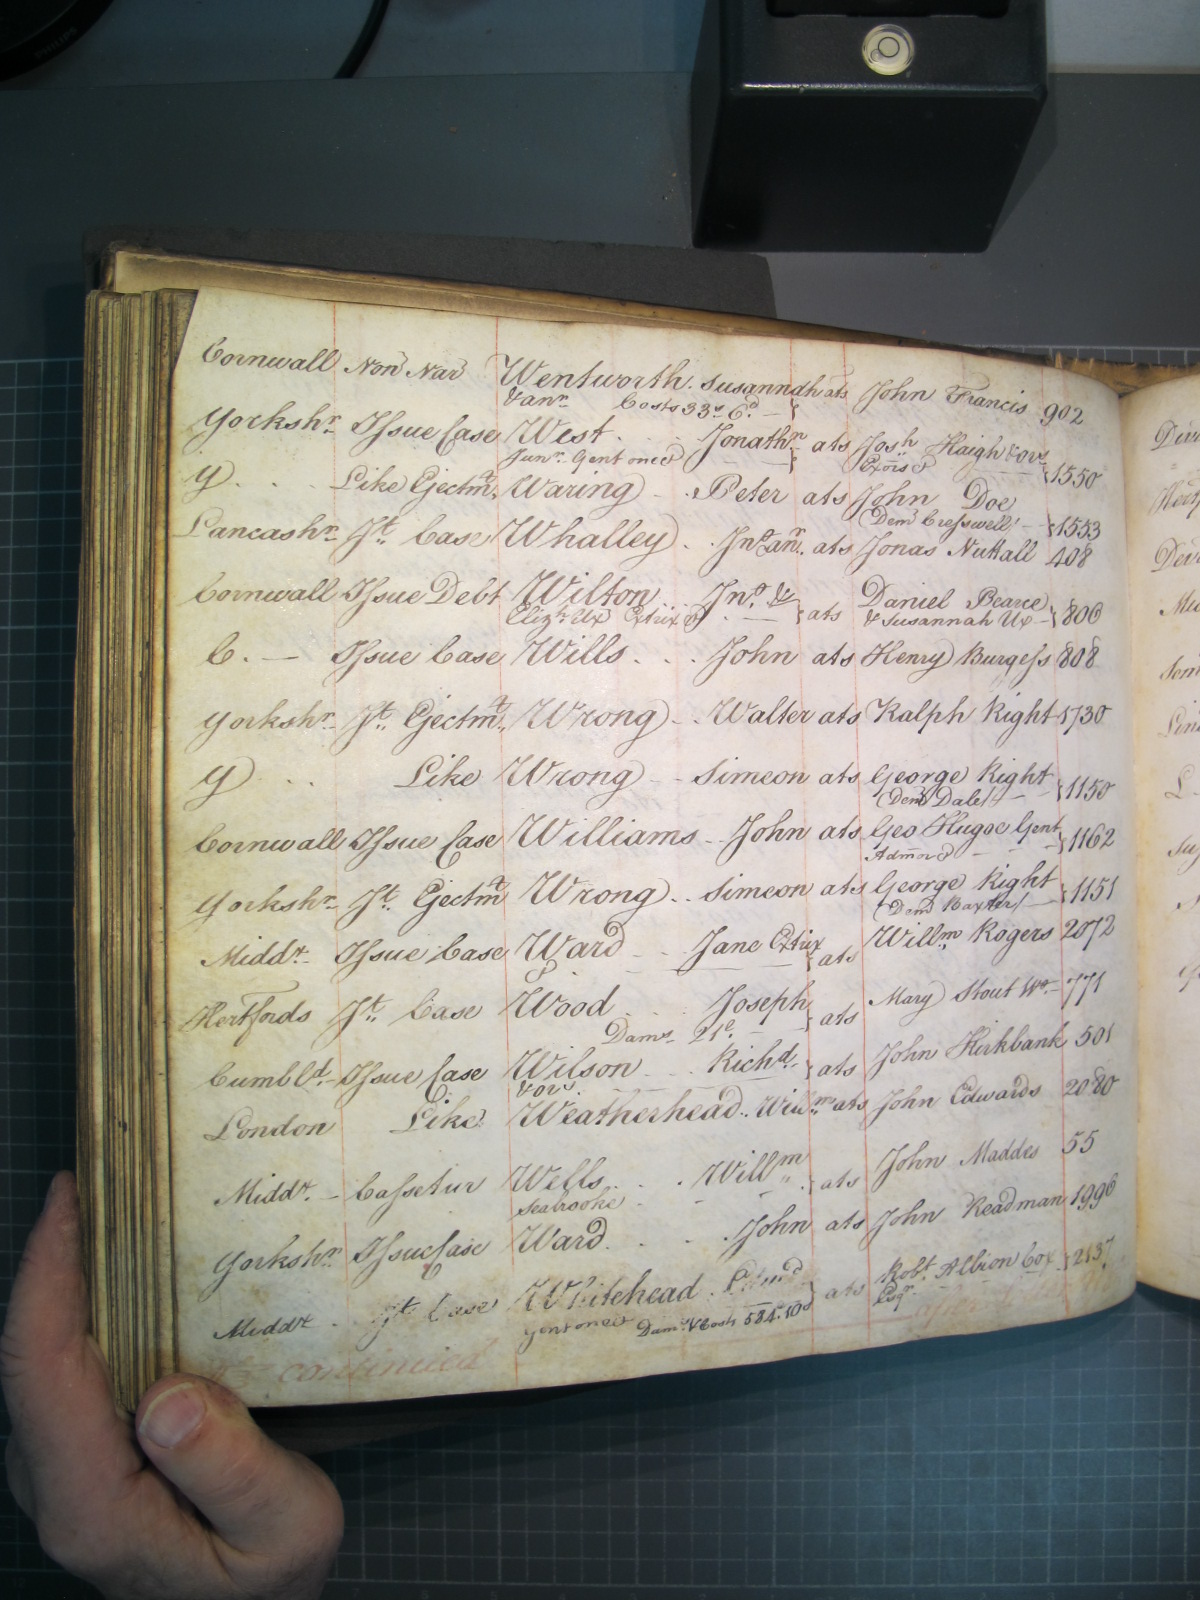 Cornwall Non Nar Wentworth. Susannah ats John Francis 902
& anr Costs 33s 6d
Yorkshr Issue Case West . . Jonathn ats Josh Haigh & ors 1550
Junr Gent one &c Exors &c
Y. . . Like Ejectmt Waring . . Peter ats John Doe
(Dem Cresswell) 1553
Lancashr Jt. Case Whalley . . Jno & anr ats Jonas Nuttall 408
Cornwall Issue Debt Wilton Jno & ats Daniel Pearce 806
Elizth Ux Extrix &c & Susannah Ux
C. — Issue Case Wills . . . John ats Henry Burgess 808
Yorkshr Jt. Ejectmt Wrong . . Walter ats Ralph Right 1730
Y . . Like Wrong . . Simeon ats George Right 1150
(Dem Dale)
Cornwall Issue Case Williams . . John ats Geo Hugoe Gent 1162
Admor &c
Yorkshr Jt. Ejectmt Wrong . . Simeon ats George Right 1151
(Dem Baxter)
Middx Issue Case Ward . . Jane Extrix ats Willm Rogers 2072
Hertfords Jt. Case Wood . . Joseph ats Mary Stout Wo 771
Dams 21£.
Cumbld. Issue Case Wilson . . Richd. ats John Kirkbank 501
& ors
London Like Weatherhead . . Willm ats John Edwards 2080
Middx. Cassetur Wells . . . Willm ats John Maddes 55
Seabrooke
Yorkshr Issue Case Ward . . . John ats John Readman 1996
Middx . Jt. Case Whitehead . Edmd ats Robt. Albion Cox 2137
Gent one &c Dams & Costs 584.10s Esqr
continued